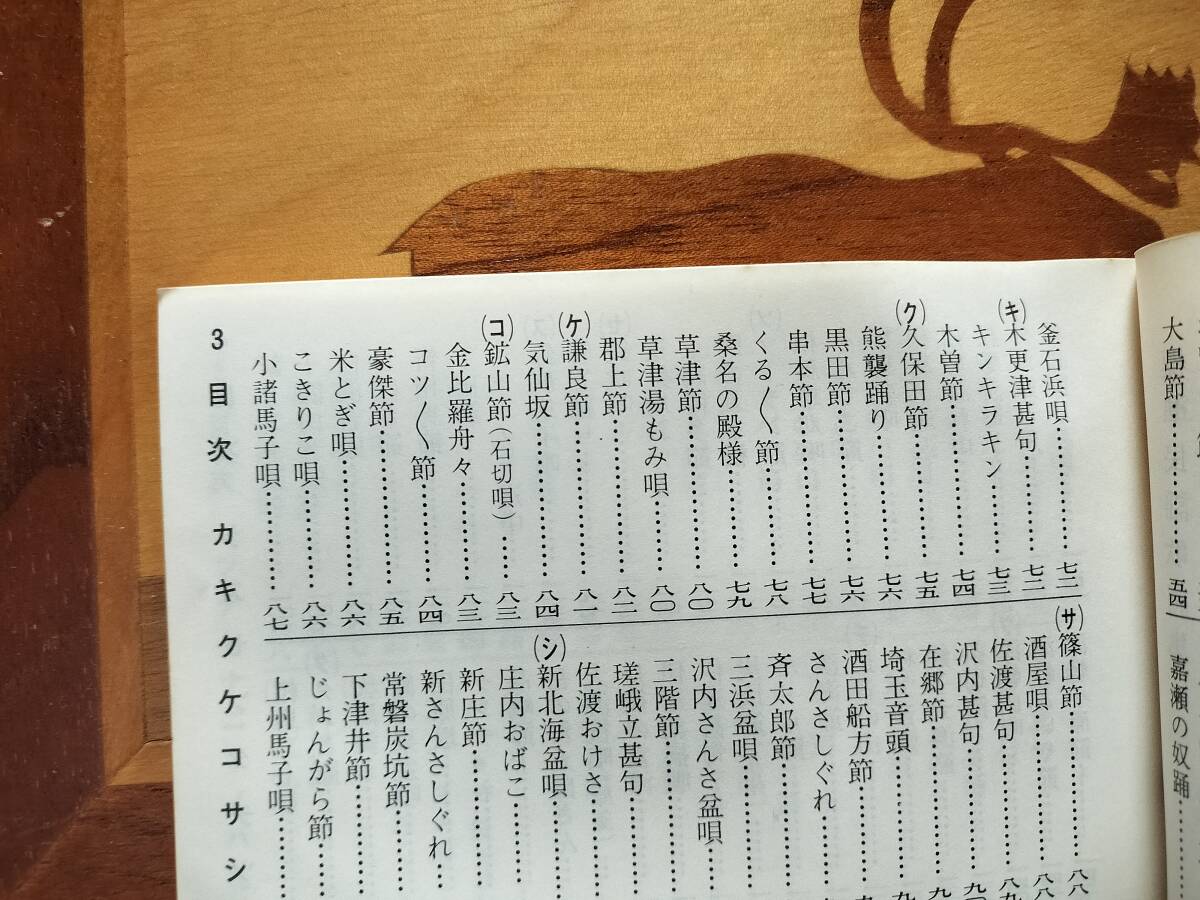 大島節……五四
嘉瀬の奴踊
釜石浜唄……七一
(キ)木更津甚句……七二
キンキラキン……七三
木曽節……七四
(ク)久保田節……七五
熊襲踊り……七六
黒田節……七六
串本節……七七
くる〱節……七八
桑名の殿様……七九
草津節……八〇
草津湯もみ唄……八〇
郡上節……八二
(ケ)謙良節……八一
気仙坂……八四
(コ)鉱山節(石切唄)……八三
金比羅舟々……八三
コツ〱節……八四
豪傑節……八五
米とぎ唄……八六
こきりこ唄……八六
小諸馬子唄……八七
(サ)篠山節……八八
酒屋唄……八八
佐渡甚句……八九
沢内甚句……
在郷節……
埼玉音頭……
酒田船方節……
さんさしぐれ……
斉太郎節……
三浜盆唄……
沢内さんさ盆唄……
三階節……
瑳峨立甚句……
佐渡おけさ……
(シ)新北海盆唄……
庄内おばこ……
新庄節……
新さんさしぐれ……
常磐炭坑節……
下津井節……
じょんがら節……
上州馬子唄……
3 目次 カキクケコサシ